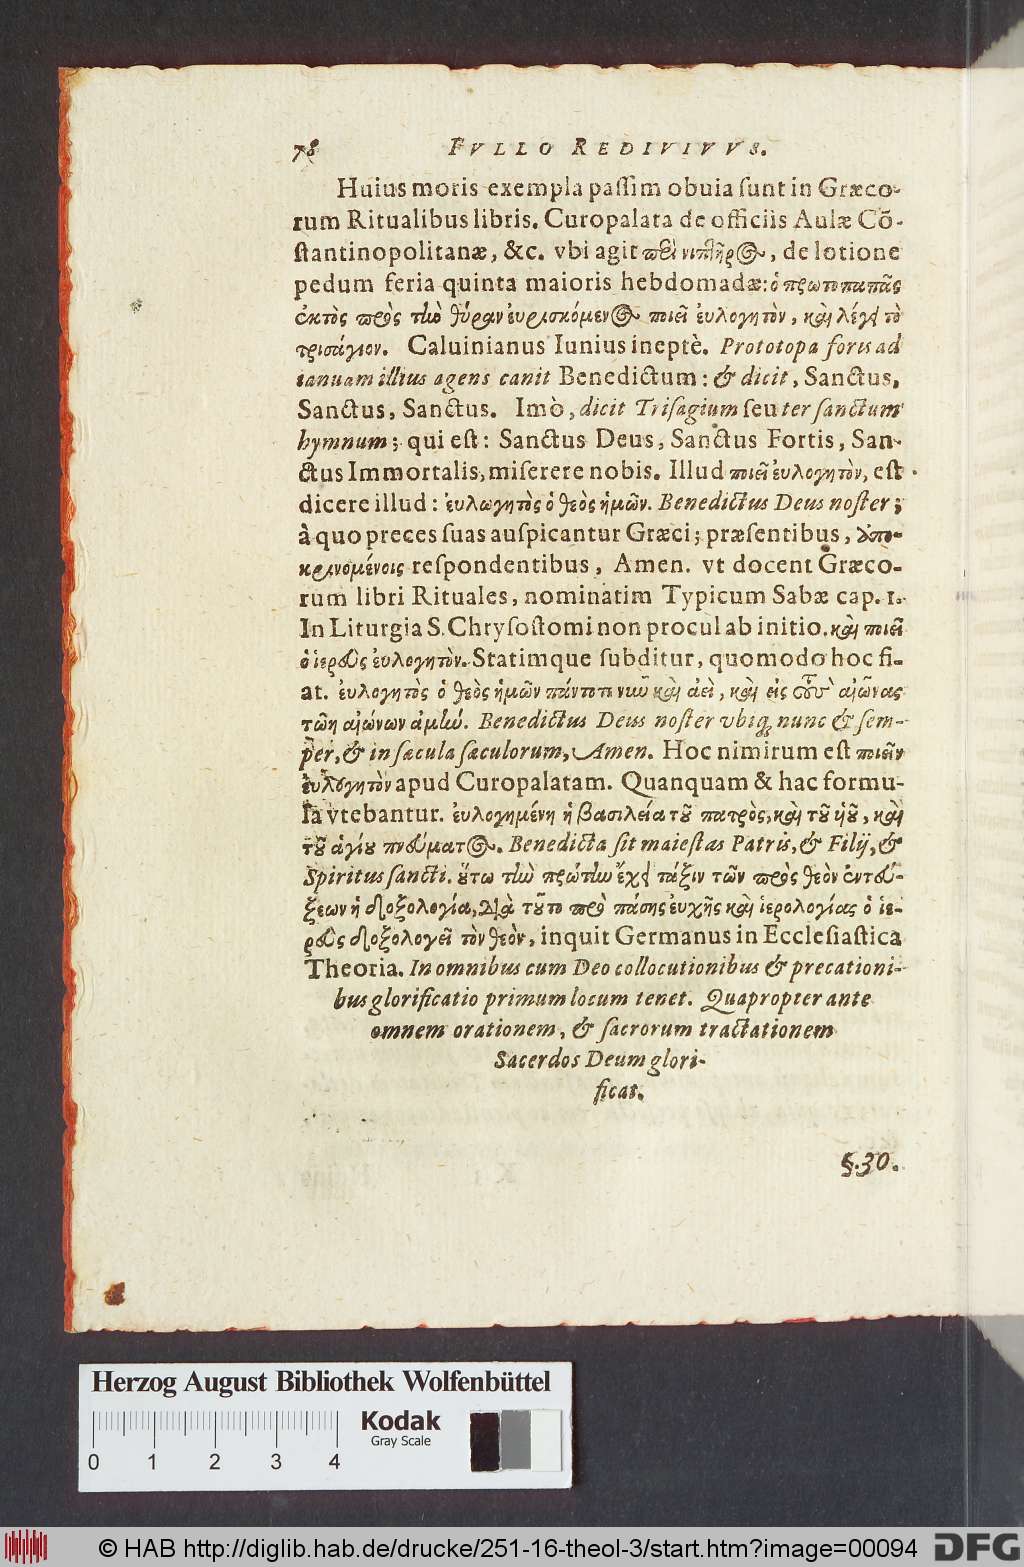 78 FVLLO REDIVIVVS.
Huius moris exempla paſſim obuia ſunt in Græco-
rum Ritualibus libris. Curopalata de officiis Aulæ Cõ-
ſtantinopolitanæ, &c. vbi agit περὶ νιπτῆρος, de lotione
pedum feria quinta maioris hebdomadæ: ὁ πρωτοπαπᾶς
ἐκτὸς πρὸς τὴν θύραν ἑυρισκόμενος ποιεῖ ἐυλογητὸν, καὶ λέγει τὸ
τρισάγιον. Caluinianus Iunius ineptè. Prototopa foris ad
ianuam illius agens canit Benedictum: & dicit, Sanctus,
Sanctus, Sanctus. Imò, dicit Triſagium ſeu ter ſanctum
hymnum; qui eſt: Sanctus Deus, Sanctus Fortis, San-
ctus Immortalis, miſerere nobis. Illud ποιεῖ ἐυλογητὸν, eſt
dicere illud: ἐυλωγητὸς ὁ θεὸς ἡμῶν. Benedictus Deus noſter;
à quo preces ſuas auſpicantur Græci; præſentibus, ὑπο-
κρινομένοις reſpondentibus, Amen. vt docent Græco-
rum libri Rituales, nominatim Typicum Sabæ cap. 1.
In Liturgia S. Chryſoſtomi non procul ab initio. καὶ ποιεῖ
ὁ ἱερεὺς ἐυλογητὸν. Statimque ſubditur, quomodo hoc fi-
at. ἐυλογητὸς ὁ θεὸς ἡμῶν πάντοτε νιῦ καὶ ἀεὶ, καὶ εἰς τοὺς αἰῶνας
τῶν αἰώνων ἀμὴν. Benedictus Deus noſter vbiq; nunc & ſem-
per, & in ſæcula ſæculorum, Amen. Hoc nimirum eſt ποιεῖν
ἐυλογητὸν apud Curopalatam. Quanquam & hac formu-
la vtebantur. ἐυλογημένη ἡ βασιλεία τοῦ πατρὸς, καὶ τοῦ ὑοῦ, καὶ
τοῦ ἁγίου πνεύματος. Benedicta ſit maieſtas Patris, & Filij, &
Spiritus ſancti. οὕτω τὴν πρώτην ἔχει τάξιν τῶν πρὸς θεὸν ἐντεύ-
ξεων ἡ δοξολογία, διὰ τοῦτο πρὸ πάσης ἐυχῆς καὶ ἱερολογίας ὁ ἱε-
ρεὺς δοξολογεῖ τὸν θεὸν, inquit Germanus in Eccleſiaſtica
Theoria. In omnibus cum Deo collocutionibus & precationi-
bus glorificatio primum locum tenet. Quapropter ante
omnem orationem, & ſacrorum tractationem
Sacerdos Deum glori-
ficat.
§.30.
Herzog August Bibliothek Wolfenbüttel
Kodak
Gray Scale
0 1 2 3 4
© HAB http://diglib.hab.de/drucke/251-16-theol-3/start.htm?image=00094
DFG